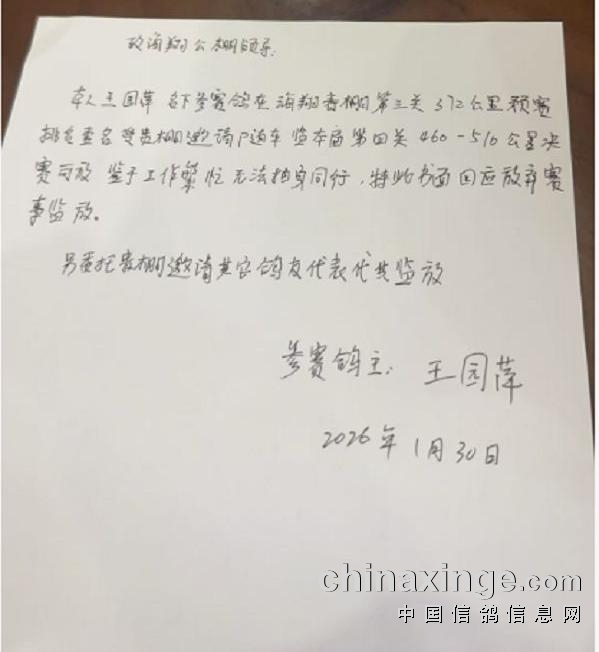 致海翔公棚领导:
本人王园萍 名下参赛鸽在海翔贵棚第三关 372公里预赛
排名壹名 受贵棚邀请 随车监本届第四关 460-510公里决
赛司放 鉴于工作繁忙无法抽身同行,特此书面回应放弃赛
事监放。
另委托贵棚邀请其它鸽友代表代其监放
参赛鸽主: 王园萍
2026年1月30日
chinaxinge.com
中国信鸽信息网